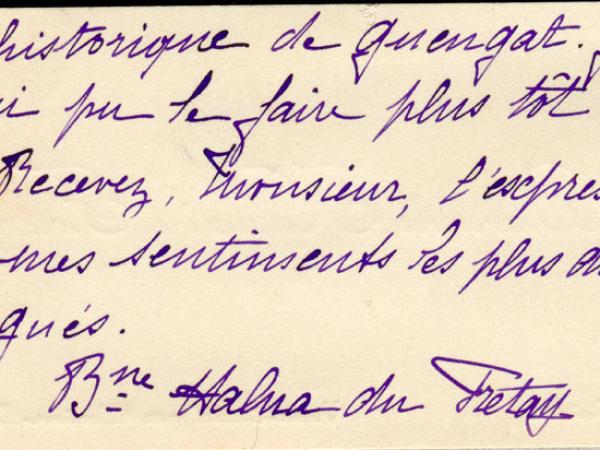 historique de Guengat.
i pu le faire plus tôt
Recevez, Monsieur, l'expres
mes sentiments les plus di
gués.
Bne Halna du Fretay